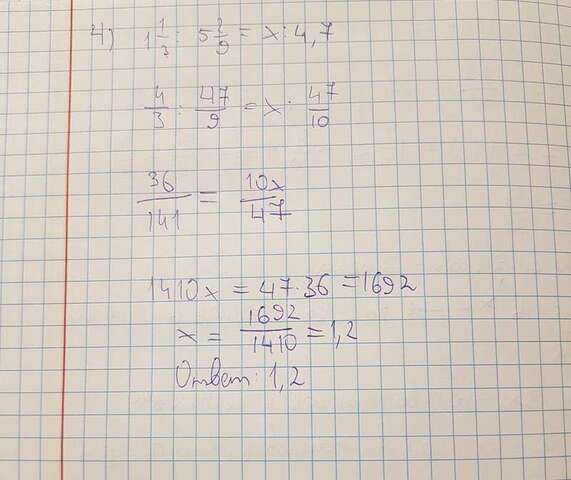 4) 1 1/3 : 5 2/9 = x : 4,7
4/3 : 47/9 = x : 47/10
36/141 = 10x/47
1410x = 47·36 = 1692
x = 1692/1410 = 1,2
Ответ: 1,2